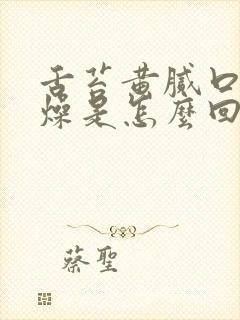 舌苔黄腻口
燥是怎麽回
蔡聖